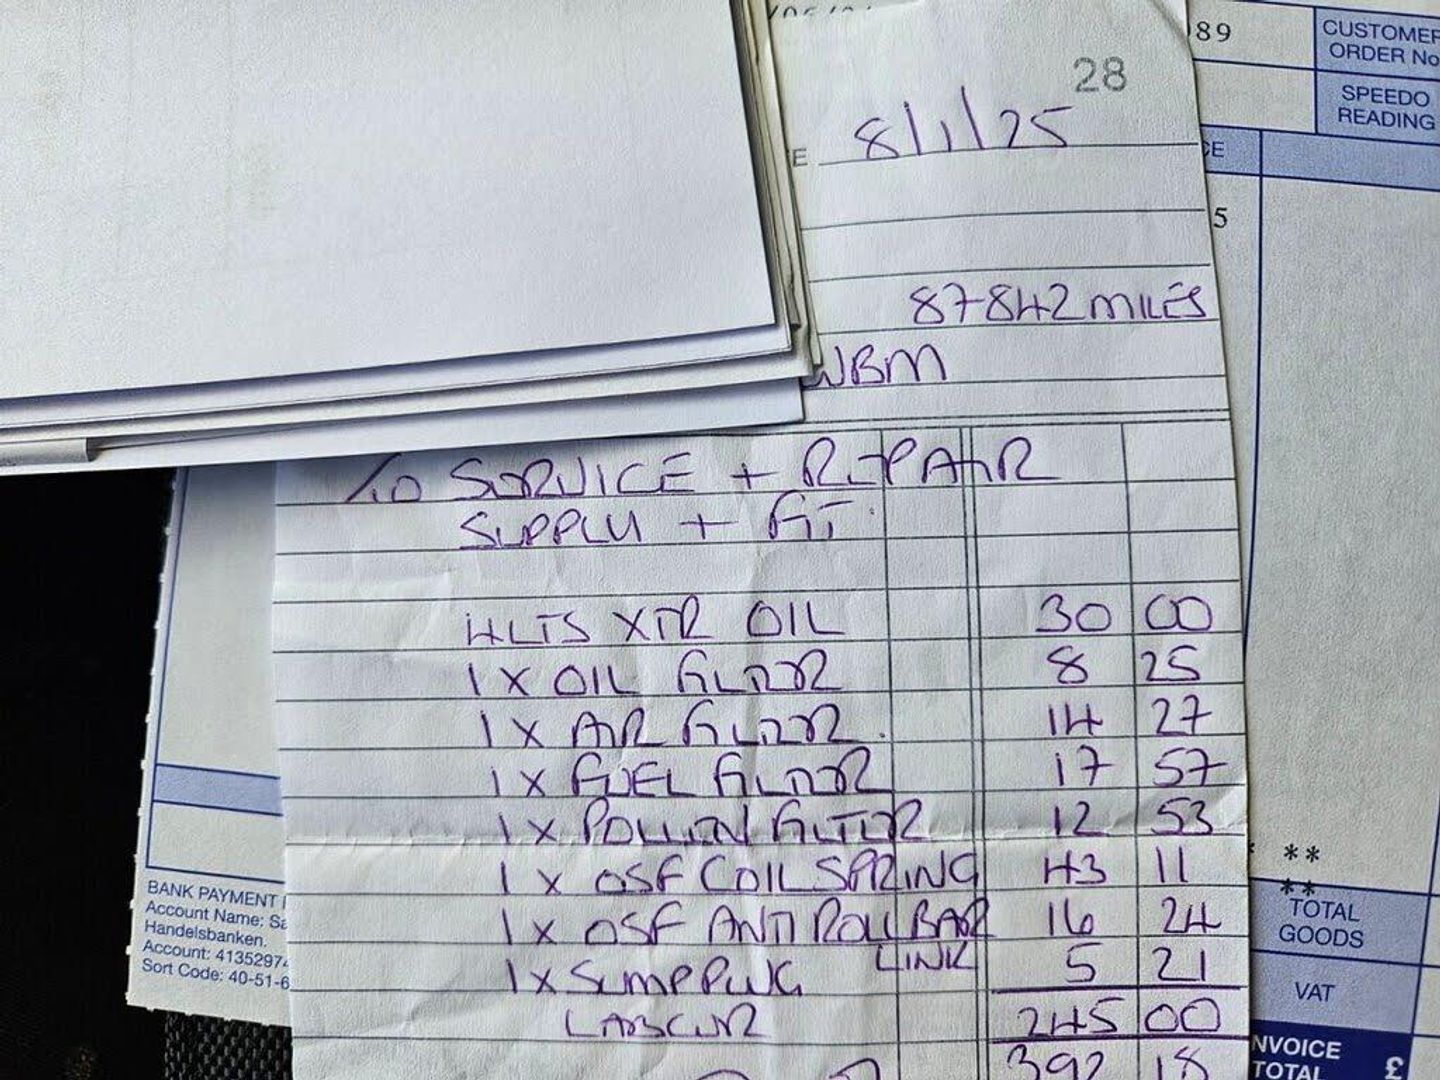 89
CUSTOMER
ORDER No
28
SPEEDO
READING
E 8/1/25
CE
5
87842 MILES
WBM
TO SERVICE + REPAIR
SUPPLY + FIT
4LTS XTR OIL 30 00
1 X OIL FILTER 8 25
1 X AIR FILTER 14 27
1 X FUEL FILTER 17 57
1 X POLLEN FILTER 12 53
1 X OSF COIL SPRING 43 11
1 X OSF ANTI ROLL BAR LINK 16 24
1 X SUMP PLUG 5 21
LABOUR 245 00
392 18
**
**
TOTAL
GOODS
VAT
NVOICE
TOTAL £
BANK PAYMENT
Account Name: Sa
Handelsbanken.
Account: 41352974
Sort Code: 40-51-6